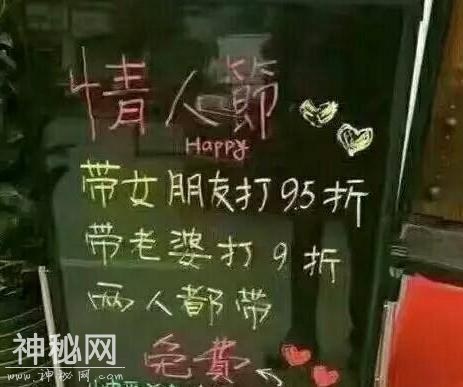 情人節
Happy
带女朋友打9.5折
带老婆打9折
两人都带
免費
神秘网
WWW.神秘网.COM